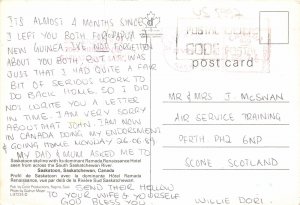 IT'S ALMOST 4 MONTHS SINCE
I LEFT YOU BOTH FOR PAPUA
NEW GUINEA. I'VE NOT FORGETTEN
ABOUT YOU BOTH, BUT IT WAS
JUST THAT I HAD QUITE A FAIR
BIT OF SERIOUS WORK TO
DO BACK HOME. SO I DID
NOT WRITE YOU A LETTER
IN TIME. I AM VERY SORRY
ABOUT THAT JOHN. I AM NOW
IN CANADA DOING MY ENDORSMENT
& GOING HOME MONDAY 26.06.89
MY DAD & MUM ASKED ME TO
Saskatoon skyline with its dominant Ramada Renaissance Hotel
seen from across the South Saskatchewan River.
Saskatoon, Saskatchewan, Canada
Saskatoon et avec la dominante Hôtel Ramada
Renaissance, vue par delà la Rivière Sud Saskatchewan.
SEND THEIR HELLOW
TO YOUR WIFE & YOURSELF
GOD BLESS YOU
WILLIE DORI
POSTAL CODE
CODE POSTAL
post card
MR & MRS J McSWAN
AIR SERVICE TRAINING
PERTH PH2 6NP
SCONE SCOTLAND